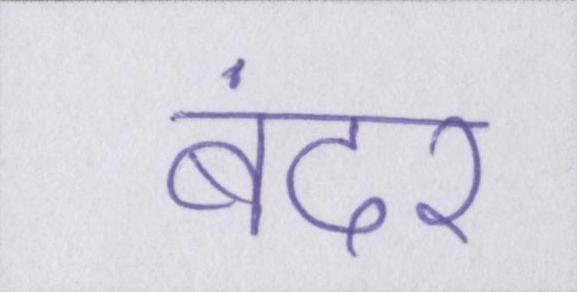 बंदर